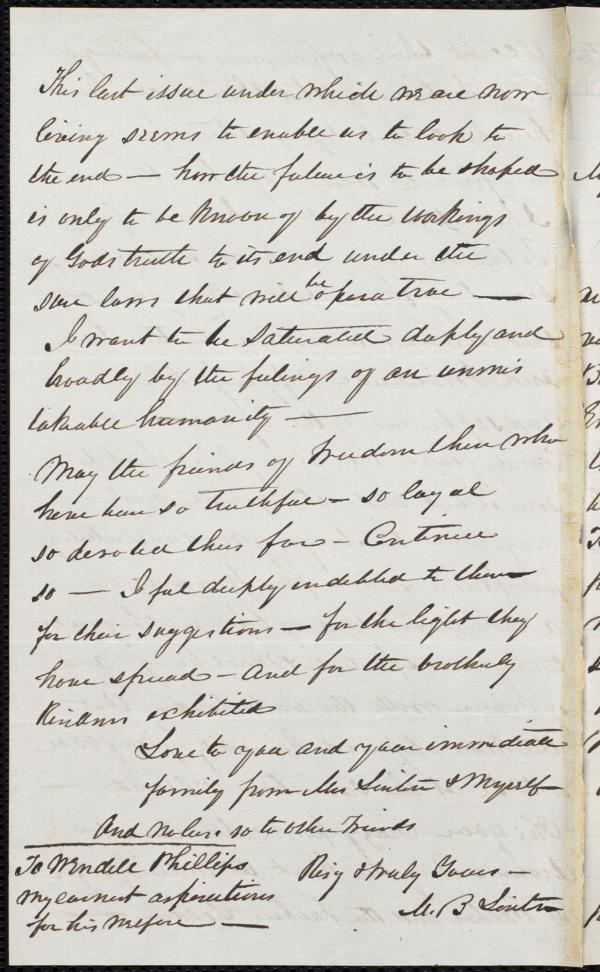 This last issue under which we are now
living seems to enable us to look to
the end — how the future is to be shaped
is only to be known of by the workings
of Gods truth to its end under the
sure laws that will be operative —
I want to be saturated deeply and
broadly by the feelings of an unmis
takeable humanity —
May the friends of freedom then who
have been so truthful — so loyal
so devoted thus far — Continue
so — I feel deeply indebted to them
for their suggestions — for the light they
have spread — and for the brotherly
kindness exhibited
Love to you and your immediate
family from Mrs Linton & Myself
And no less so to other Friends
To Wendell Phillips
my earnest aspirations
for his welfare —
Resy & truly Yours —
M. B Linton